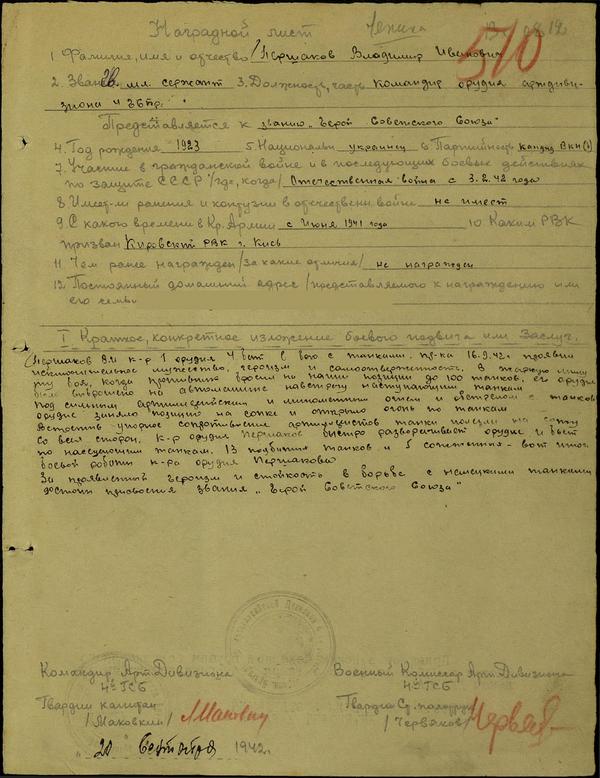 Наградной лист
570
1 Фамилия, имя и отчество / Першаков Владимир Иванович
2. Звание мл. сержант 3. Должность, часть Командир орудия артдиви-
зиона 4
Представляется к званию „Герой Советского Союза"
4. Год рождения 1923 5. Национальн украинец 6 Партийность канд ВКП(б)
7. Участие в гражданской войне и в последующих боевые действиях
по защите СССР /где, когда/ Отечественная война с 3.2.42 года
8. Имеет ли ранения и контузии в отечественн. войне не имеет
9. С какого времени в Кр. Армии с Июня 1941 года 10. Каким РВК
призван Кировский РВК г. Киев
11. Чем ранее награжден /за какие отличия/ не награжден
12. Постоянный домашний адрес /представляемого к награждению или
его семьи
I Краткое, конкретное изложение боевого подвига или заслуг.
Першаков В.И к-р 1 орудия 4 бат в бою с танками пр-ка 16.9.42г проявил
исключительное мужество, героизм и самоотверженность. В жаркую мину
ту боя, когда противник бросил на наши позиции до 100 танков, его орудие
было выброшено на автомашине навстречу наступающим танкам
Под сильным артиллерийским и минометным огнем и обстрелом с танков
орудие заняло позицию на сопке и открыло огонь по танкам
Встретив упорное сопротивление артиллеристов танки полезли на сопку
со всех сторон, к-р орудия Першаков быстро разворачивает орудие и бьет
по наседающим танкам. 13 подбитых танков и 5 сожженных - вот итог
боевой работы к-ра орудия Першакова
За проявленный героизм и стойкость в борьбе с немецкими танками
достоин присвоения звания „Герой Советского Союза"
Командир Арт. Дивизиона Военный Комиссар Арт. Дивизиона
4й ГСБ 4й ГСБ
Гвардии капитан Гвардии Ст. политрук
/Маковкин/ /Червяков/
„20 Сентября 1942г.